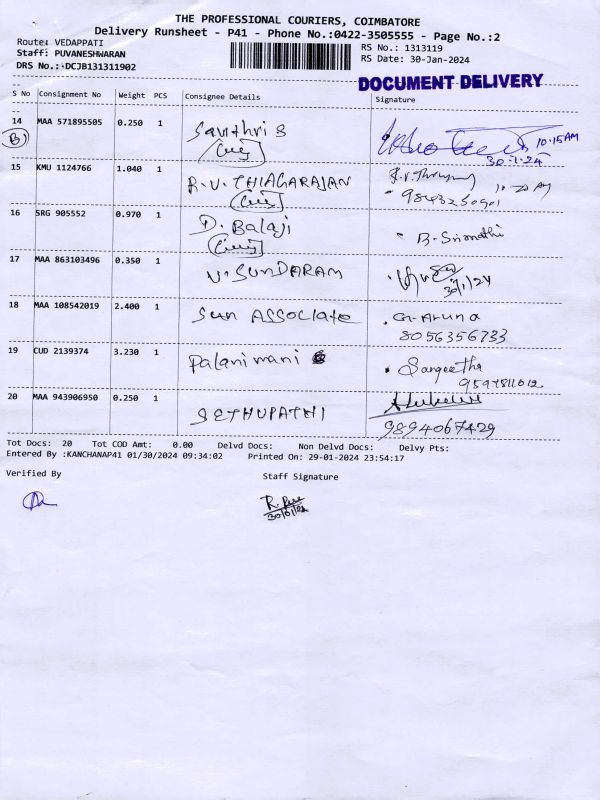 THE PROFESSIONAL COURIERS, COIMBATORE
Delivery Runsheet - P41 - Phone No.:0422-3505555 - Page No.:2
Route: VEDAPPATI
RS No.: 1313119
Staff: PUVANESHWARAN
RS Date: 30-Jan-2024
DRS No.: DCJB131311902
DOCUMENT DELIVERY
S No Consignment No Weight PCS Consignee Details Signature
14 MAA 571895505 0.250 1 Savithri S 10:15AM
B) 30-1-24
15 KMU 1124766 1.040 1 R.V. THIAGARAJAN 10.20 AM
9843250901
16 SRG 905552 0.970 1 D. Balaji B. Srimathi
17 MAA 863103496 0.350 1 V. SUNDARAM
30/1/24
18 MAA 108542019 2.400 1 Sun ASSOCIate G. Aruna
8056356733
19 CUD 2139374 3.230 1 Palanimani Sangeetha
9597811012
20 MAA 943906950 0.250 1 SETHUPATHI
9894067429
Tot Docs: 20 Tot COD Amt: 0.00 Delvd Docs: Non Delvd Docs: Delvy Pts:
Entered By :KANCHANAP41 01/30/2024 09:34:02 Printed On: 29-01-2024 23:54:17
Verified By Staff Signature
30/01/24